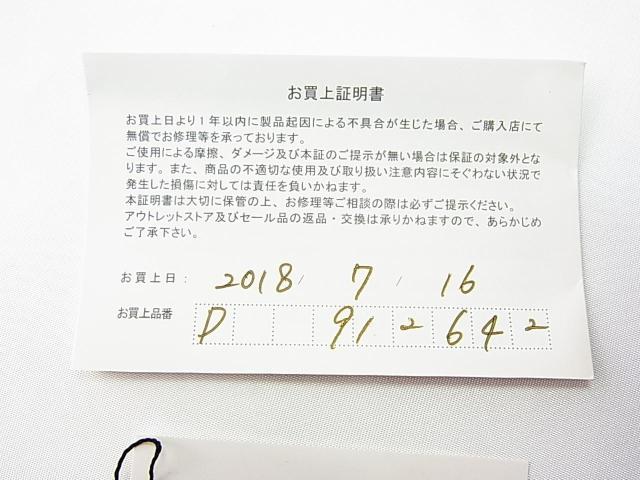 お買上証明書
お買上日より1年以内に製品起因による不具合が生じた場合、ご購入店にて
無償でお修理等を承っております。
ご使用による摩擦、ダメージ及び本証のご提示が無い場合は保証の対象外とな
ります。また、商品の不適切な使用及び取り扱い注意内容にそぐわない状況で
発生した損傷に対しては責任を負いかねます。
本証明書は大切に保管の上、お修理等ご相談の際は必ずご提示ください。
アウトレットストア及びセール品の返品・交換は承りかねますので、あらかじめ
ご了承下さい。
お買上日： 2018 / 7 / 16
お買上品番 D 91 2 6 4 2